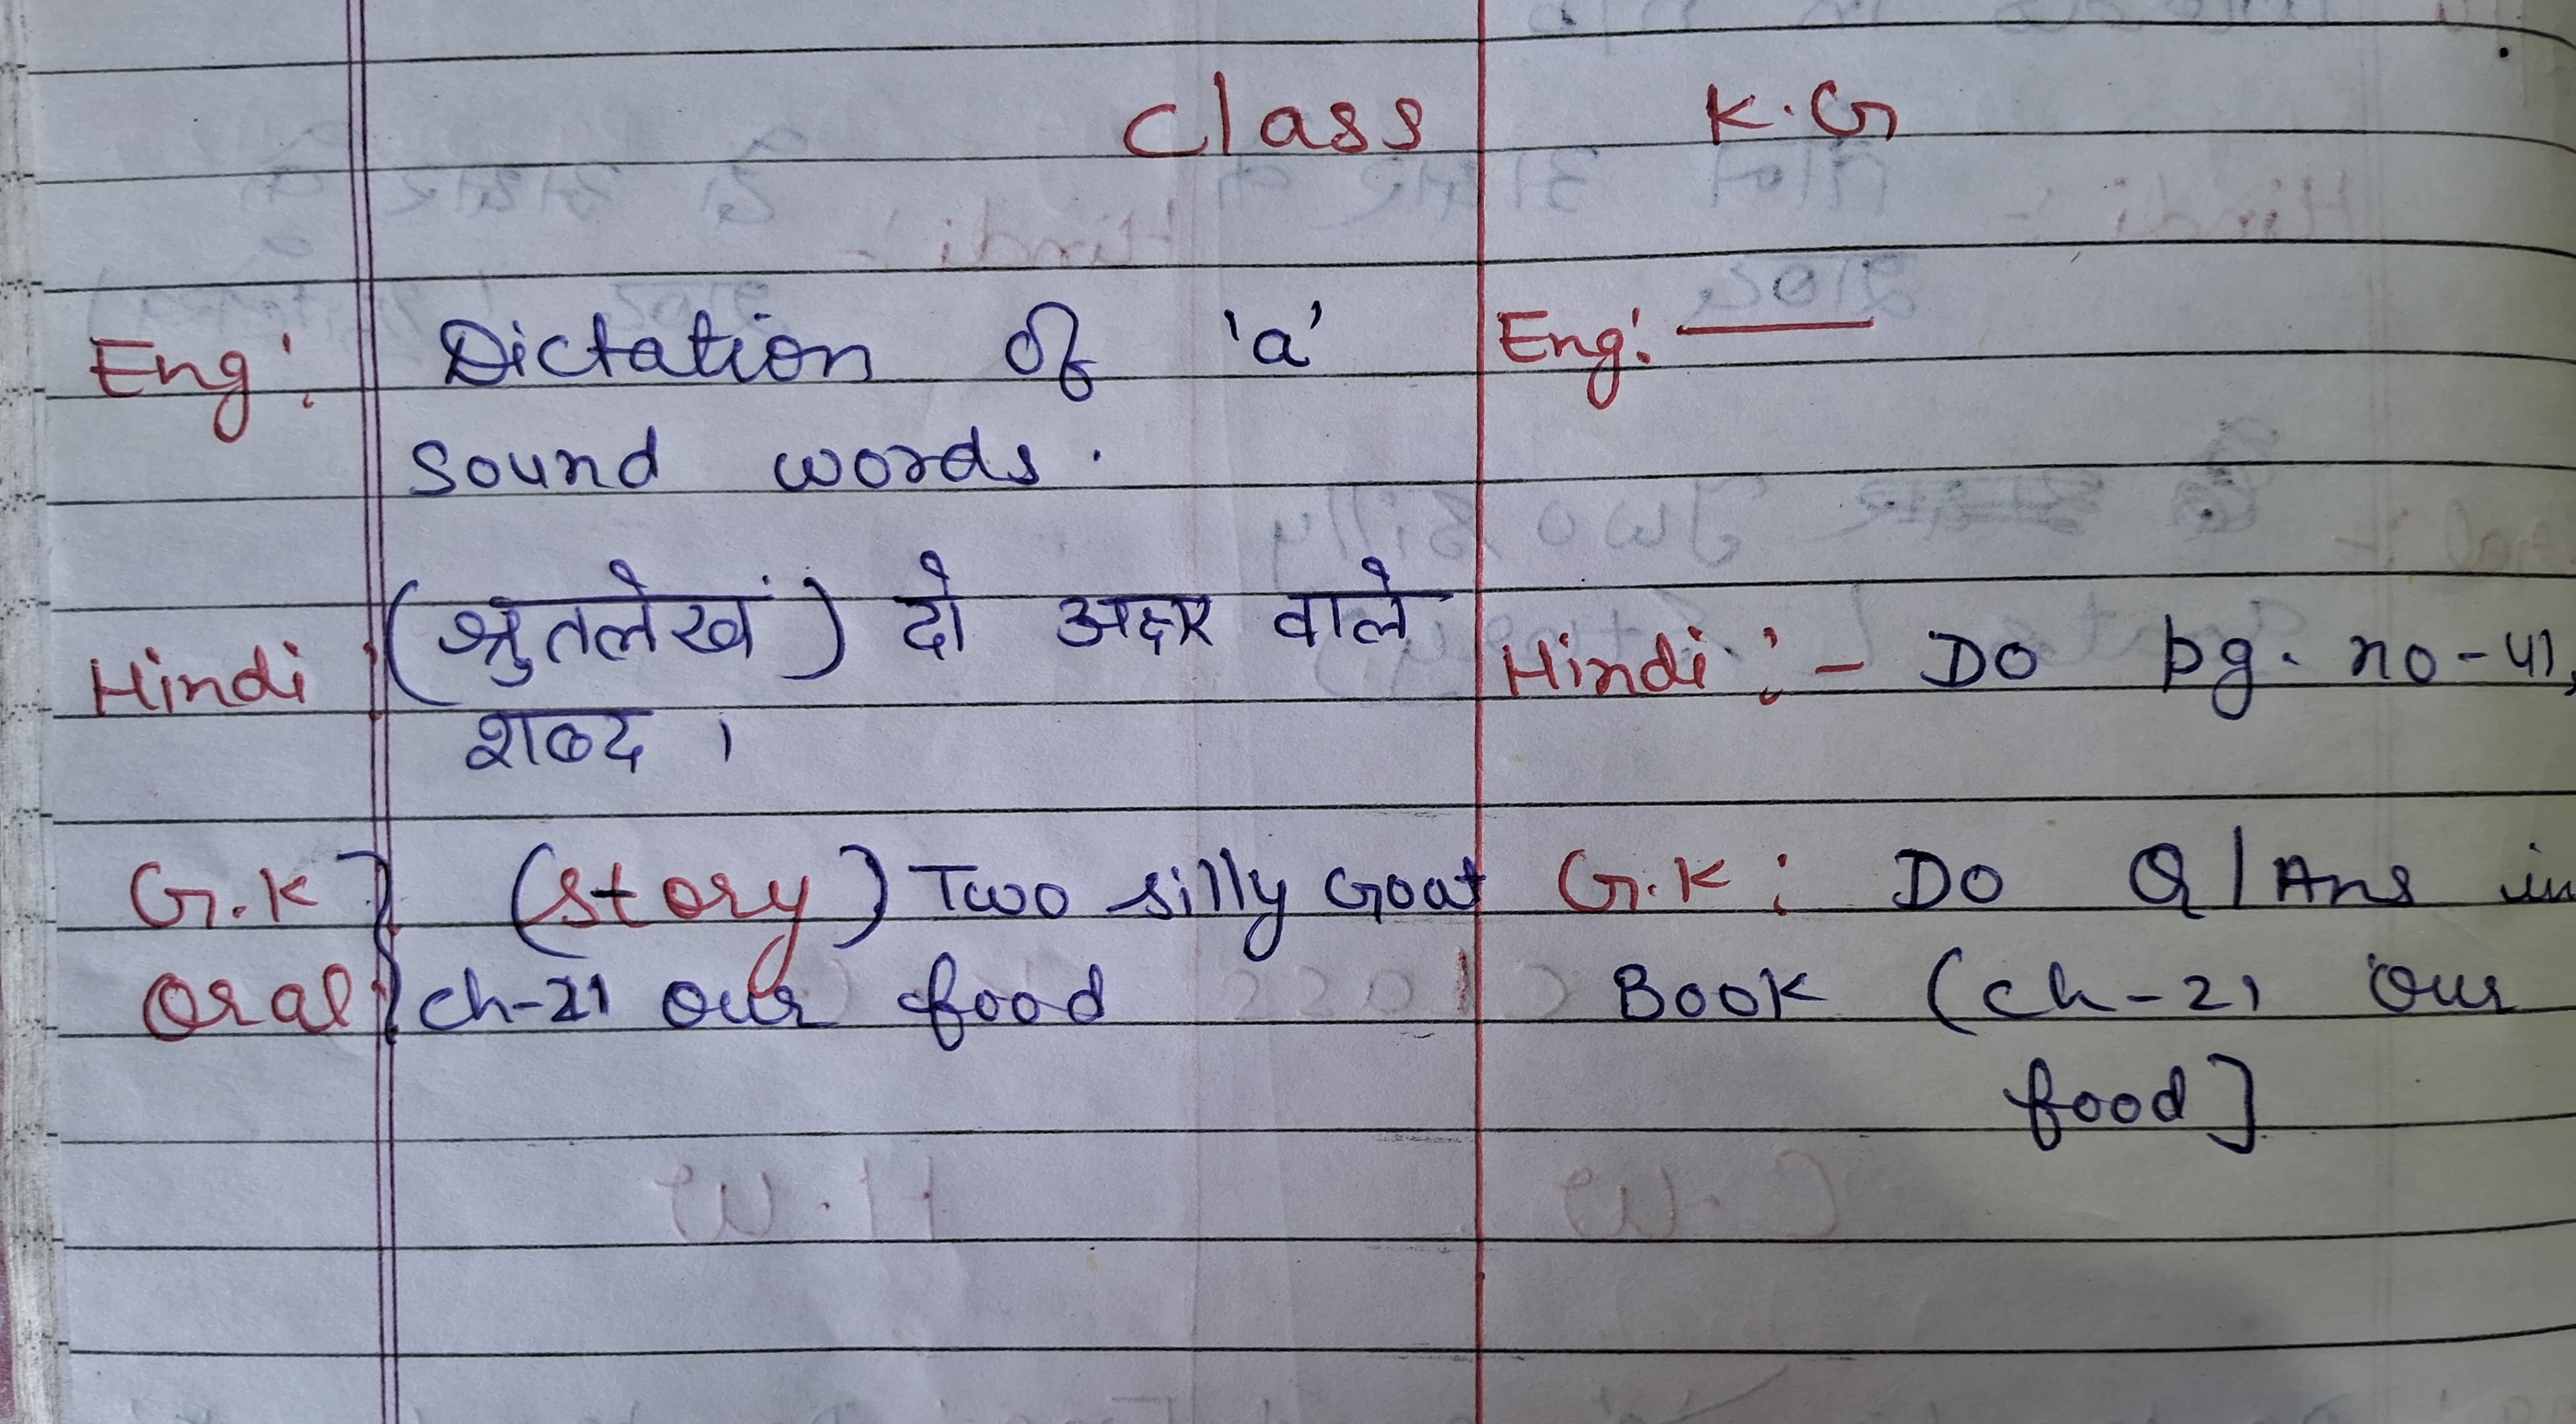 Class K.G
Eng: Dictation of 'a'
sound words.
Hindi : (श्रुतलेखं) दो अक्षर वाले
शब्द ।
G.K } (story) Two silly Goat
Oral } ch-21 our food
Eng: ———
Hindi :- Do pg. no-41,
G.K : Do Q/Ans in
Book (ch-21 Our
food]